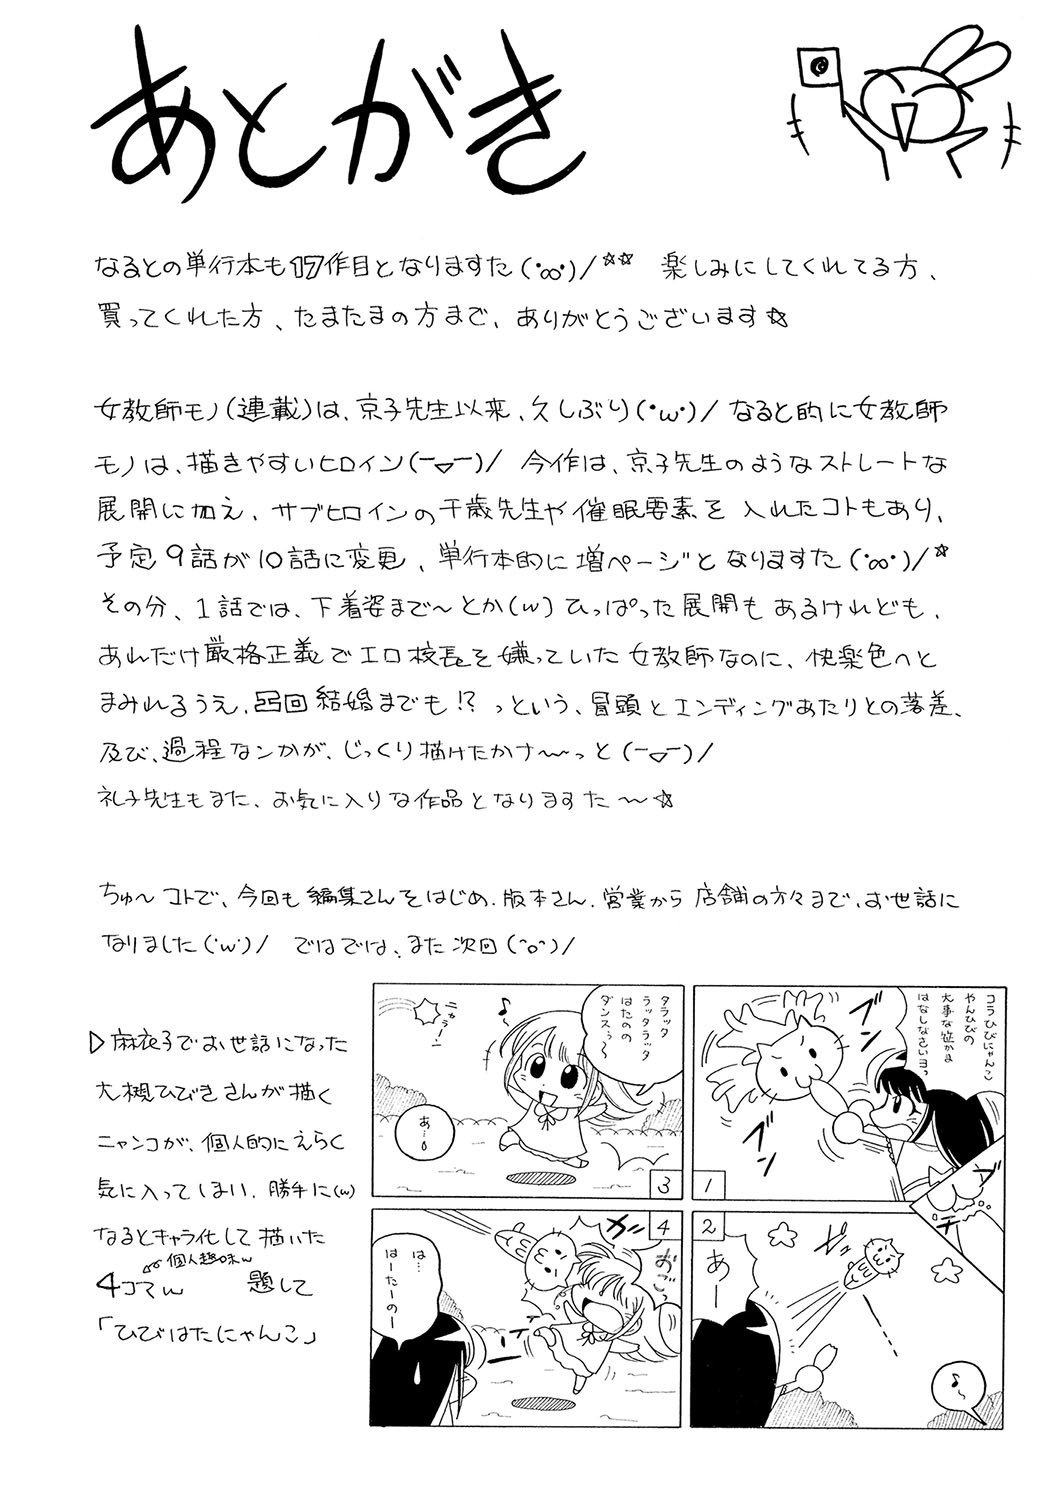 あとがき
なるとの単行本も17作目となりますた(・∞・)/☆☆ 楽しみにしてくれてる方、
買ってくれた方、たまたまの方まで、ありがとうございます☆
女教師モノ(連載)は、京子先生以来、久しぶり(・ω・)/ なると的に女教師
モノは、描きやすいヒロイン(￣▽￣)/ 今作は、京子先生のようなストレートな
展開に加え、サブヒロインの千歳先生や催眠要素を入れたコトもあり、
予定9話が10話に変更、単行本的に増ページとなりますた(・∞・)/☆
その分、1話では、下着姿まで〜とか(w)ひっぱった展開もあるけれども、
あれだけ厳格正義でエロ校長を嫌っていた女教師なのに、快楽色へと
まみれるうえ、凸凹結婚までも!?っという、冒頭とエンディングあたりとの落差、
及び、過程なンかが、じっくり描けたかナ〜っと(￣▽￣)/
礼子先生もまた、お気に入りな作品となりますた〜☆
ちゅ〜コトで、今回も編集さんをはじめ、版本さん、営業から店舗の方々まで、お世話に
なりました(・w・)/ ではでは、また次回(^o^)/
▷麻衣子でお世話になった
大槻ひびきさんが描く
ニャンコが、個人的にえらく
気に入ってしまい、勝手に(w)
なるとキャラ化して描いた
個人趣味w
4コマw 題して
「ひびはたにゃんこ」
コラひびにゃんこ
やんひびの
大事な
はなしなさいヨっ
ブンブン
1
あー
2
♪〜
タラッタ
ラッタラッタ
はたのの
ダンスぅ〜
♪
ニャラー!
あ…
3
は…
はーたーのー
ガッ
おごっ
4